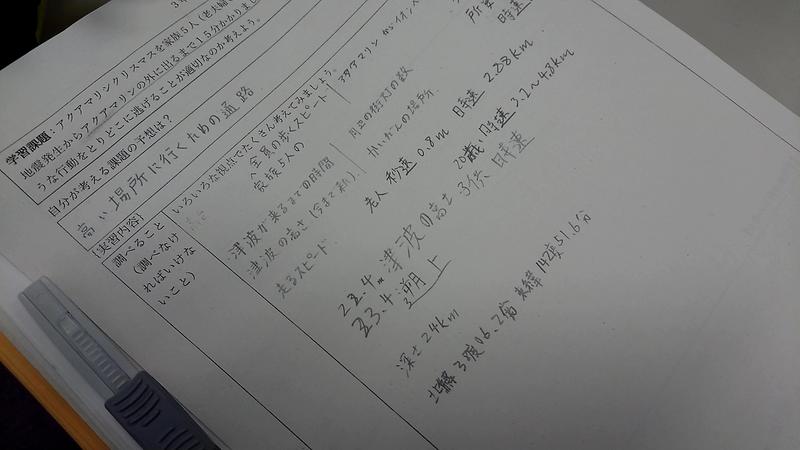 学習課題：アクアマリンクリスマスを家族５人（
地震発生からアクアマリンの外に出るまで１５分かかりまし
うな行動をとりどこに逃げることが適切なのか考えよう。
自分が考える課題の予想は？
高い場所に行くための通路
【実習内容】
調べること
（調べなけ
ればいけな
いこと）
いろいろな視点でたくさん考えてみましょう。
全員の歩くスピード
家族5人の
津波が来るまでの時間
津波の高さ
走るスピード
アクアマリンから
周辺の街灯の数
かいだんの場所
老人 秒速 0.8m 時速 2.88km
20歳 時速 3.2〜4.8km
22.4m 津波の高さ 3倍 時速
23.4 遡上
深さ24km
北緯3 度06.2分 東経142度51.6分